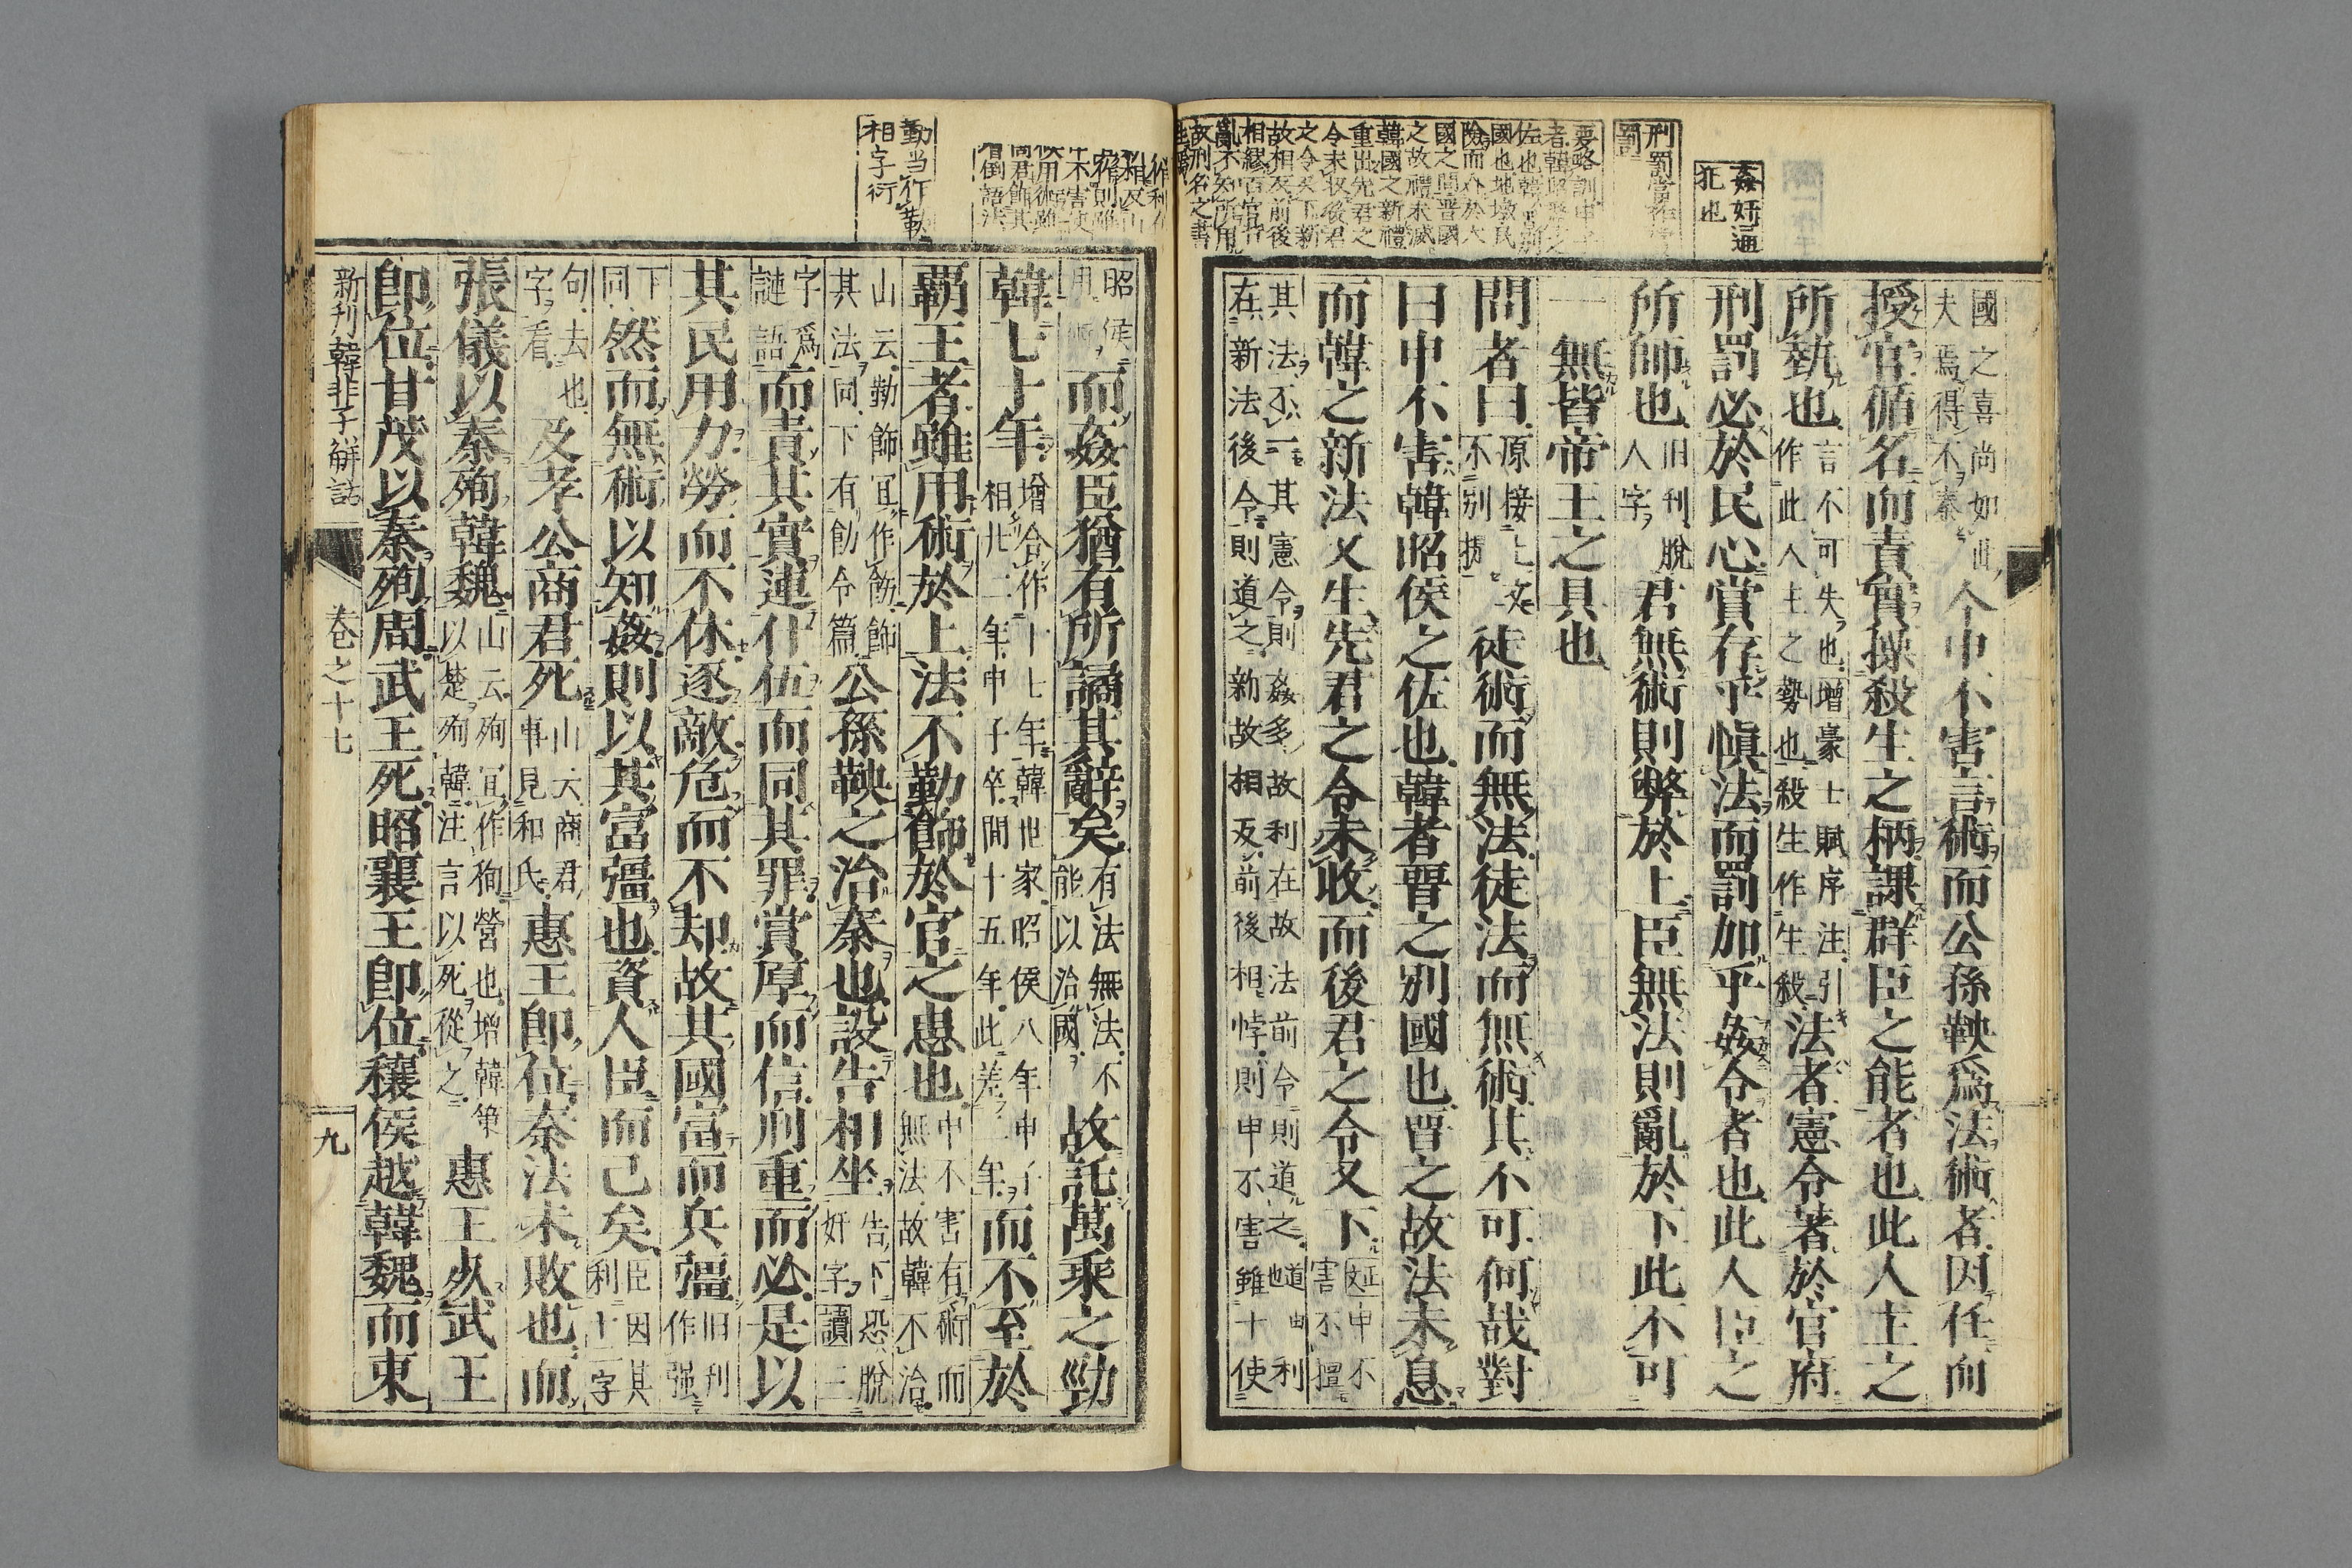 姦奸通
犯也
刑罰當作
罰
要略訓申子
者韓昭釐之
佐也韓晉別
國也地墽民
險而介於大
國之間晉國
之故禮未滅
韓國之新禮
重出先君之
令未收後君
之令又下新
故相反前後
相繆百官背
亂不知所用
故刑名之書
生焉
國之喜尚如此
夫焉得不秦
今申不害言術而公孫鞅爲法術者因任而
授官循名而責實操殺生之柄課群臣之能者也此人主之
所執也
言不可失也增豪士賦序注引
作此人主之勢也殺生作生殺
法者憲令著於官府
刑罰必於民心賞存乎愼法而罰加乎姦令者也此人臣之
所師也
旧刊脫
人字
君無術則弊於上臣無法則亂於下此不可
一無皆帝王之具也
問者曰
原接上文
不別提
徒術而無法徒法而無術其不可何哉對
曰申不害韓昭侯之佐也韓者晉之別國也晉之故法未息
而韓之新法又生先君之令未收而後君之令又下
延申不
害不擅
其法不一其憲令則姦多故利在故法前令則道之道由也利
在新法後令則道之新故相反前後相悖則申不害雖十使
勤當作勑
相字衍
昭侯
用術
而姦臣猶有所譎其辭矣
有法無法不
能以治國
故託萬乘之勁
韓七十年
增合作十七年韓世家昭侯八年申子
相廿二年申子卒間十五年此差二年
而不至於
霸王者雖用術於上法不勤飾於官之患也
申不害有術而
無法故韓不治
山云勤飾宜作飭飾
其法同下有飭令篇
公孫鞅之治秦也設告相坐
告下恐脫
奸字讀三
字爲
謰語
而責其實連什伍而同其罪賞厚而信刑重而必是以
其民用力勞而不休逐敵危而不却故其國富而兵彊
旧刊
作强
下
同
然而無術以知姦則以其富彊也資人臣而已矣
臣因其
利十一字
句去也
字看
及孝公商君死
山云商君
事見和氏
惠王卽位秦法未敗也而
張儀以秦殉韓魏
山云殉宜作徇營也增韓策
以楚殉韓注言以死從之
惠王死武王
卽位甘茂以秦殉周武王死昭襄王卽位穰侯越韓魏而東
新刊韓非子解詁
卷之十七
九